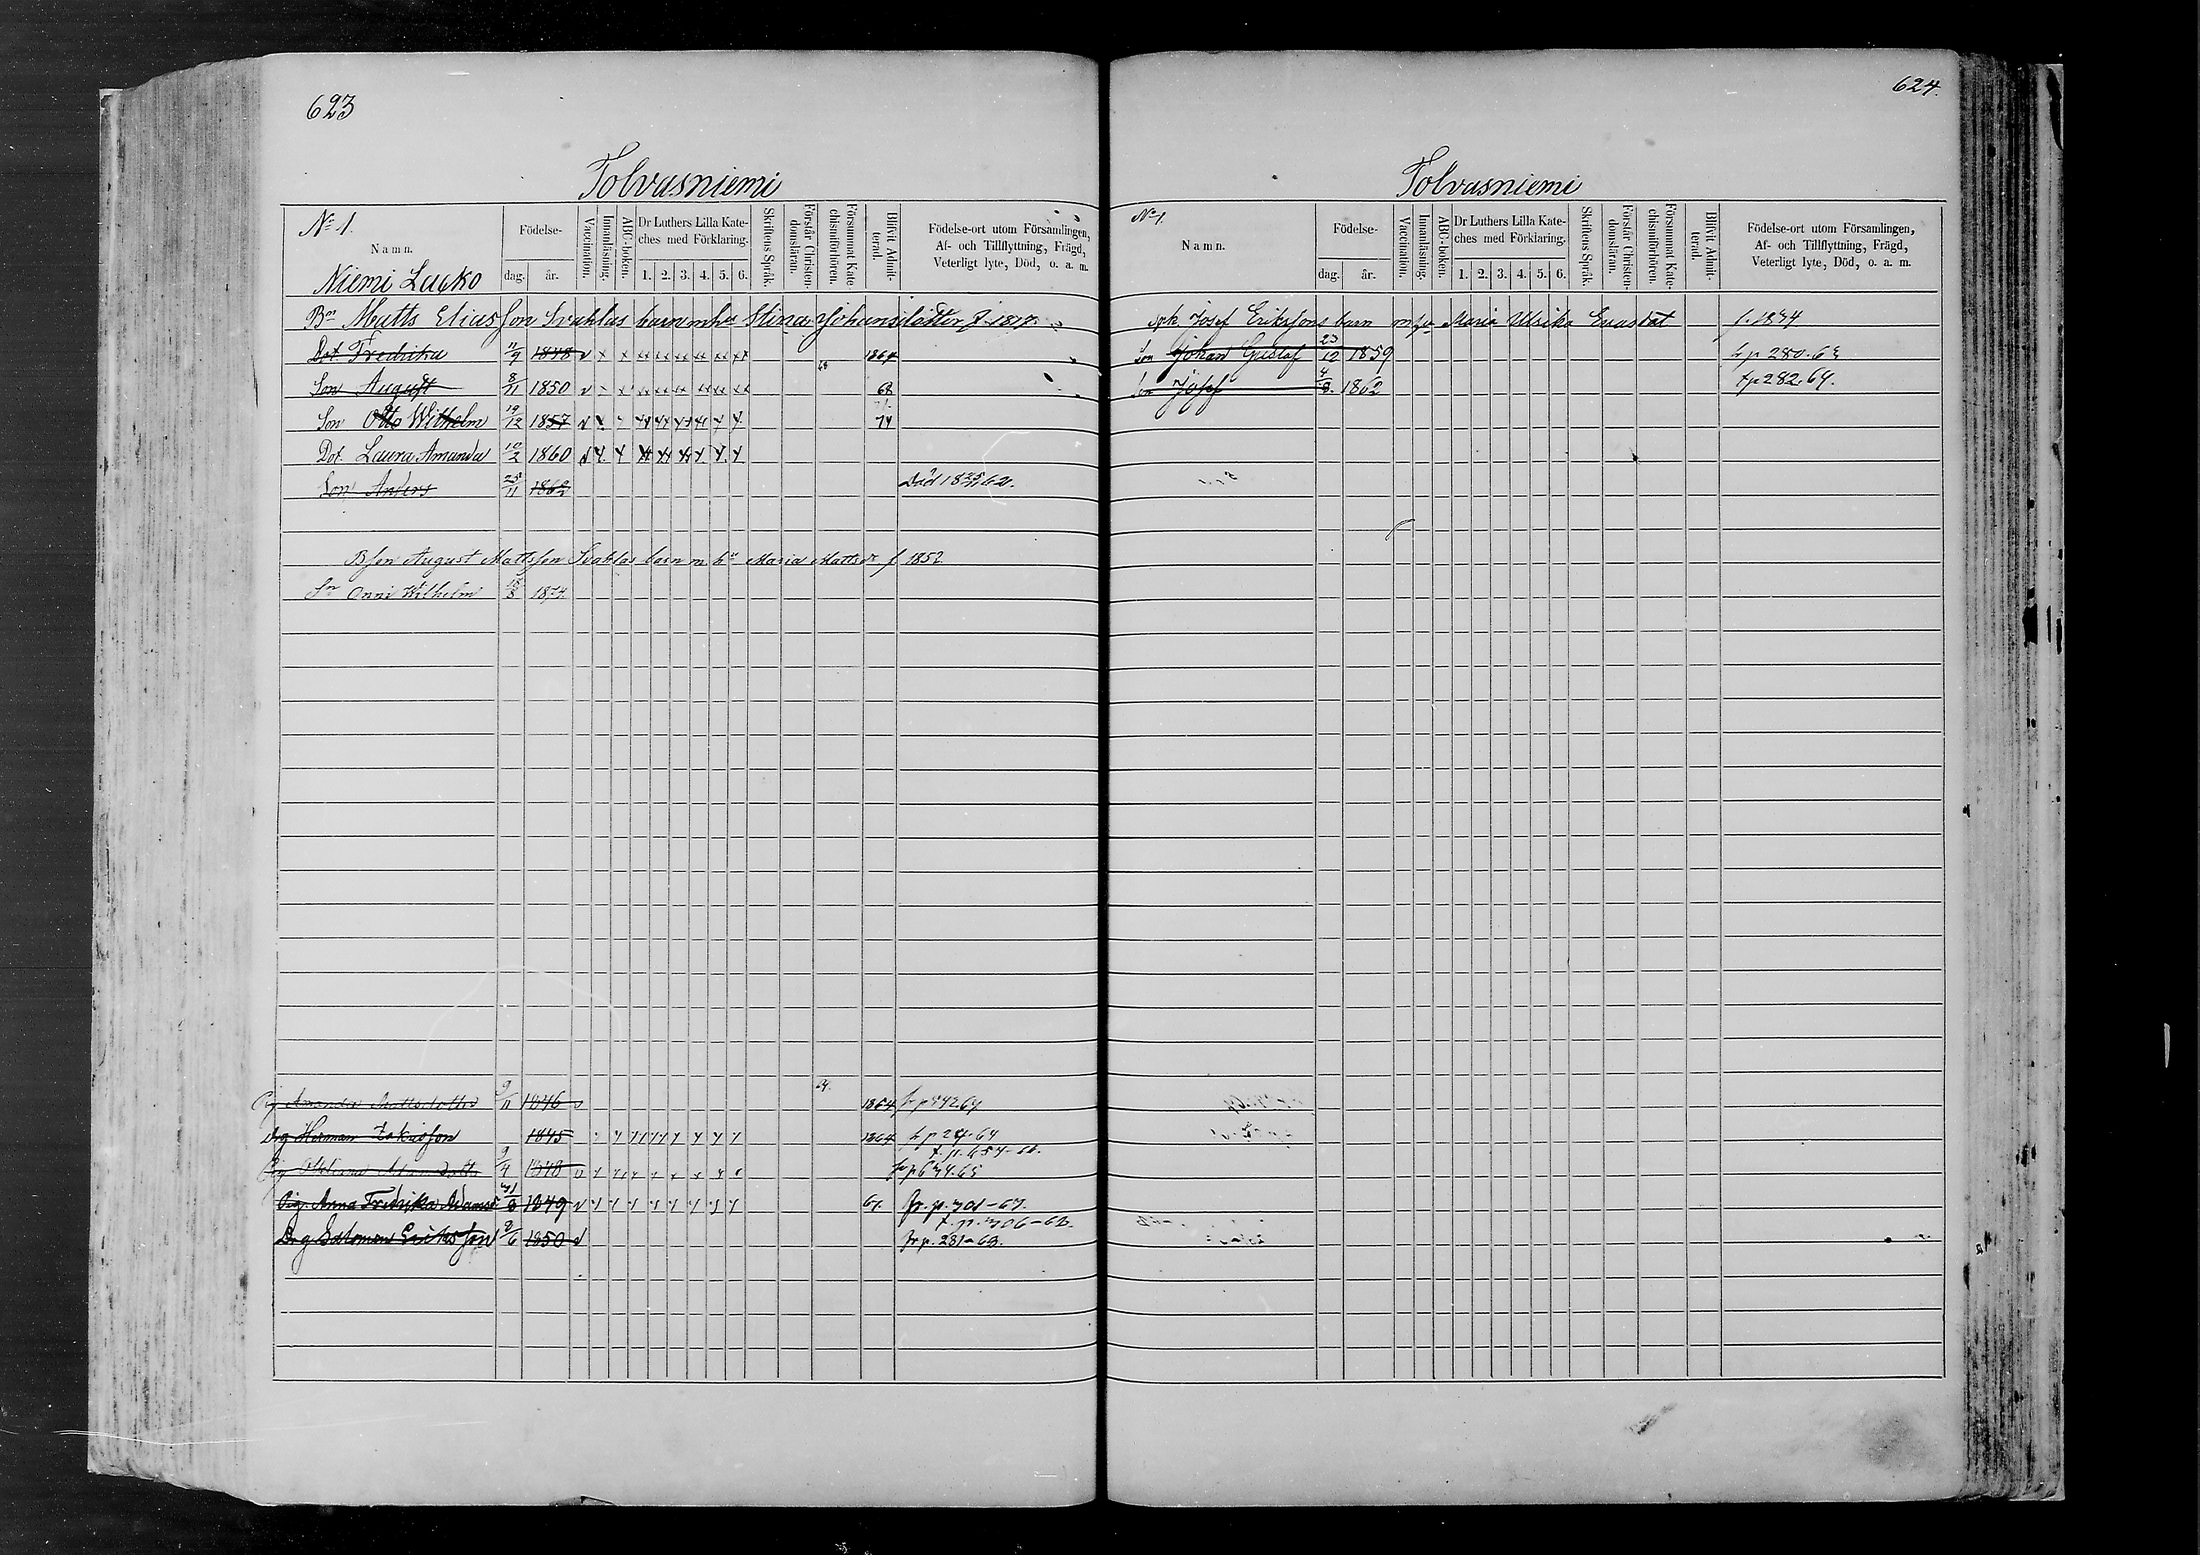 623
Tolvasniemi
No 1.
Namn.
Födelse-
dag. år.
Vaccination.
Innanläsning.
ABC-boken.
Dr Luthers Lilla Kate-
ches med Förklaring.
1. 2. 3. 4. 5. 6.
Skriftens Språk.
Förstår Christen-
domsläran.
Försummat Kate
chismiförhören.
Blifvit Admit-
terad.
Födelse-ort utom Församlingen,
Af- och Tillflyttning, Frägd,
Veterligt lyte, Död, o. a. m.
Niemi Lacko
Bn Matts Eliasson barn m hu Stina Johansdotter f. 1817.
Dot. Fredrika 11/9 1848 1864
Son August 8/11 1850 68
Son Otto Wilhelm 19/12 1857 74
Dot. Laura Amanda 10/2 1860
Son Anders 25/11 1862 Död 62.
August Mattsson barn m hu Maria Mattsdr f 1852
Sn Onni Wilhelm 18/8 1874.
Pig Amanda Mattsdotter 9/11 1846 1864
Drg Herman 1845 1864 fr p 24.64
t. p. 654-66.
Pig 9/4 1848 fr p 674.65
Pig. Anna Fredrika Adamsd 1849 67. fr. p. 701-67.
t. p. 706-68.
Drg Salomon Eriksson 2/6 1850 fr p. 231-68.
624.
Tolvasniemi
No 1
Namn.
Födelse-
dag. år.
Vaccination.
Innanläsning.
ABC-boken.
Dr Luthers Lilla Kate-
ches med Förklaring.
1. 2. 3. 4. 5. 6.
Skriftens Språk.
Förstår Christen-
domsläran.
Försummat Kate-
chismiförhören.
Blifvit Admit-
terad.
Födelse-ort utom Församlingen,
Af- och Tillflyttning, Frägd,
Veterligt lyte, Död, o. a. m.
Josef Erikssons barn Maria Ulrika f. 1834
Son Johan Gustaf 23/12 1859 fr p 280.63
Son Josef 4/8 1862 t p 282.64.